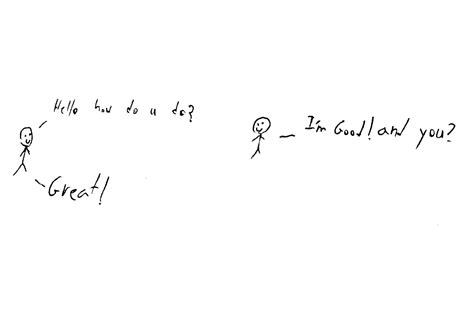 Hello how do u do?
I'm Good! and you?
Great!